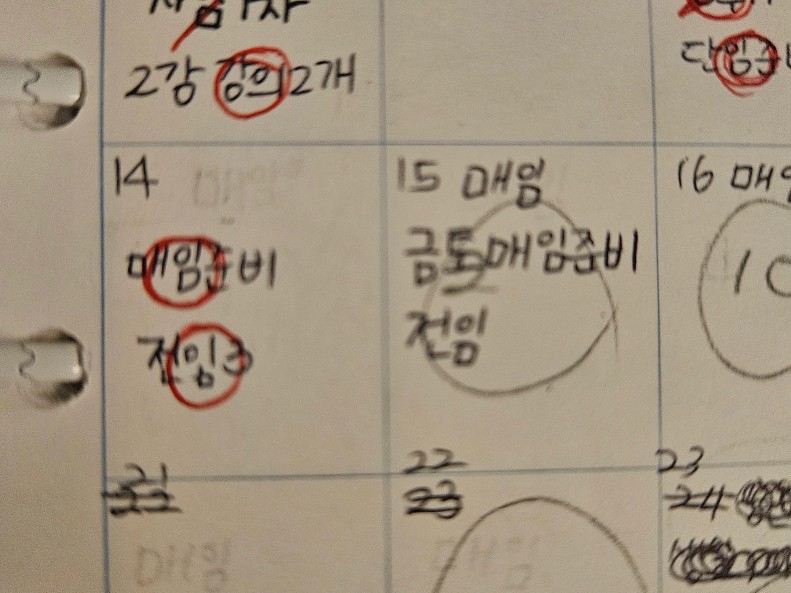 2강 강의 2개
14
매임준비
전임3
15 매임
금토매임준비
전임
16 매임
10
21
22
23
24
매임
매임